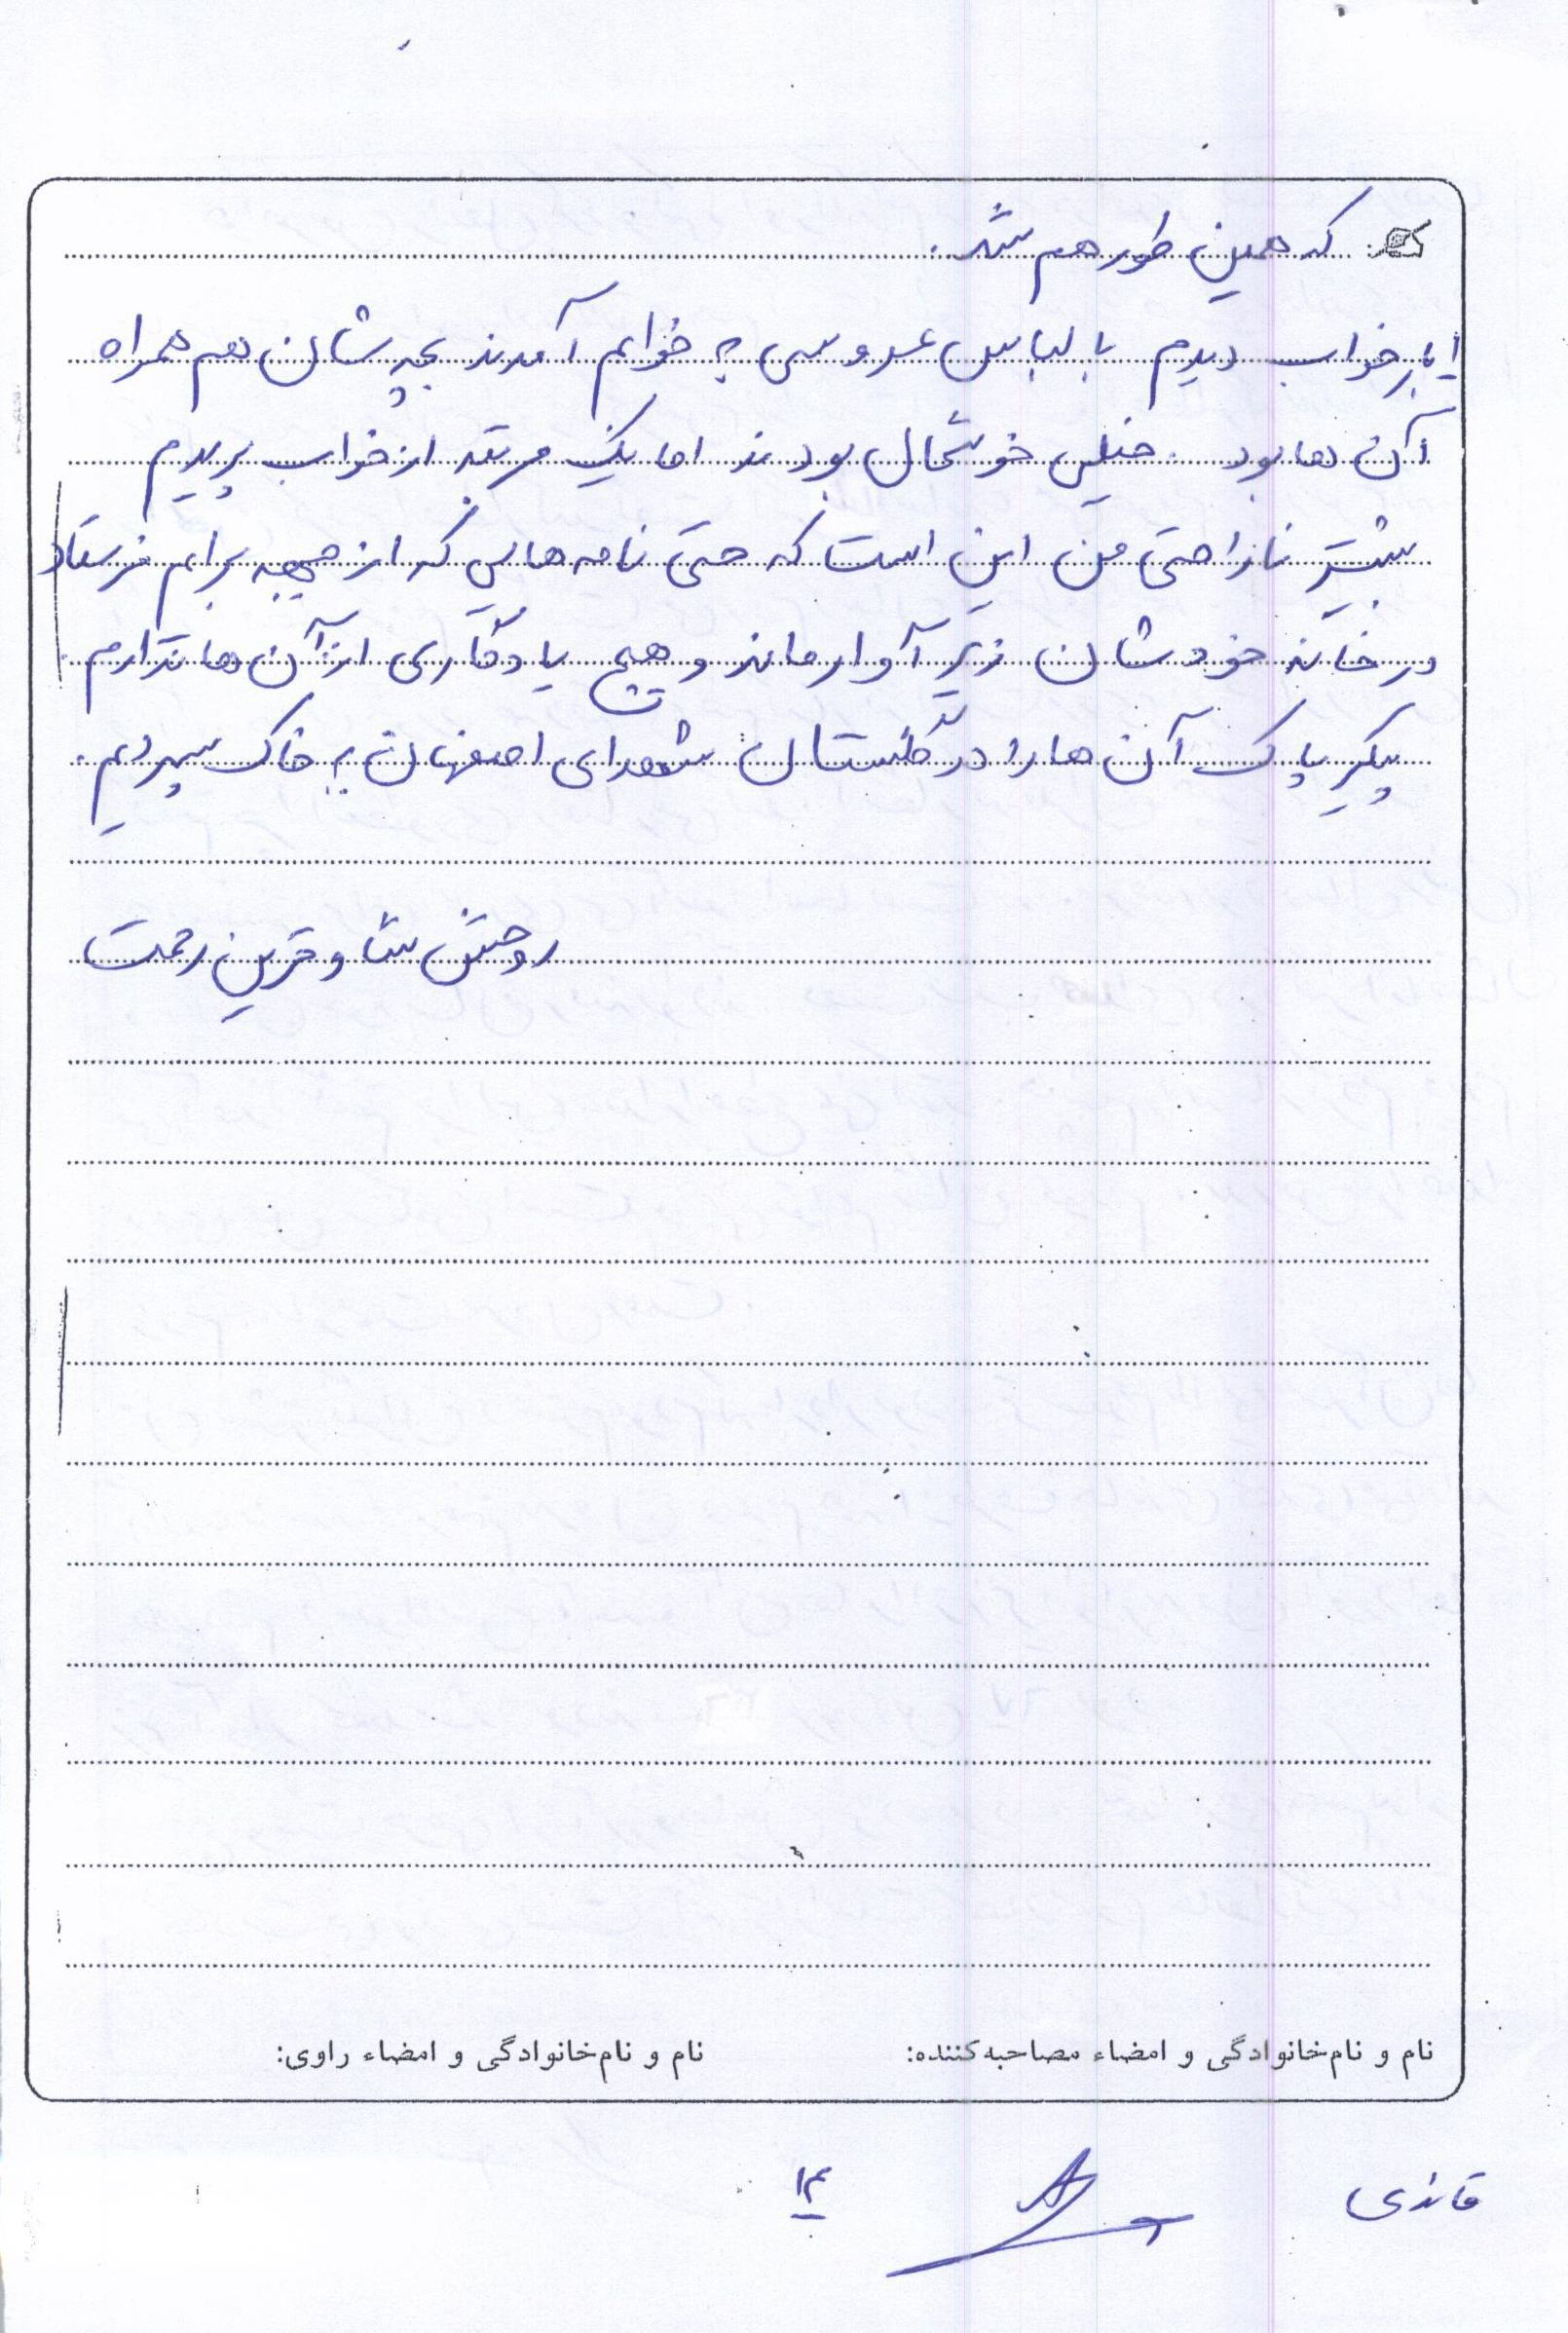 که همین طور هم شد.
یکبار خواب دیدم با لباس عروسی به خوابم آمدند بچه شان هم همراه
آن ها بود. خیلی خوشحال بودند اما یک مرتبه از خواب پریدم
بیشتر ناراحتی من این است که حتی نامه هایی که از جبهه برایم فرستاد
در خانه خودشان زیر آوار ماند و هیچ یادگاری از آن ها ندارم.
پیکر پاک آن ها را در گلستان شهدای اصفهان به خاک سپردیم.
روحش شاد و قرین رحمت
نام و نام‌خانوادگی و امضاء مصاحبه‌کننده: نام و نام‌خانوادگی و امضاء راوی:
۱۴